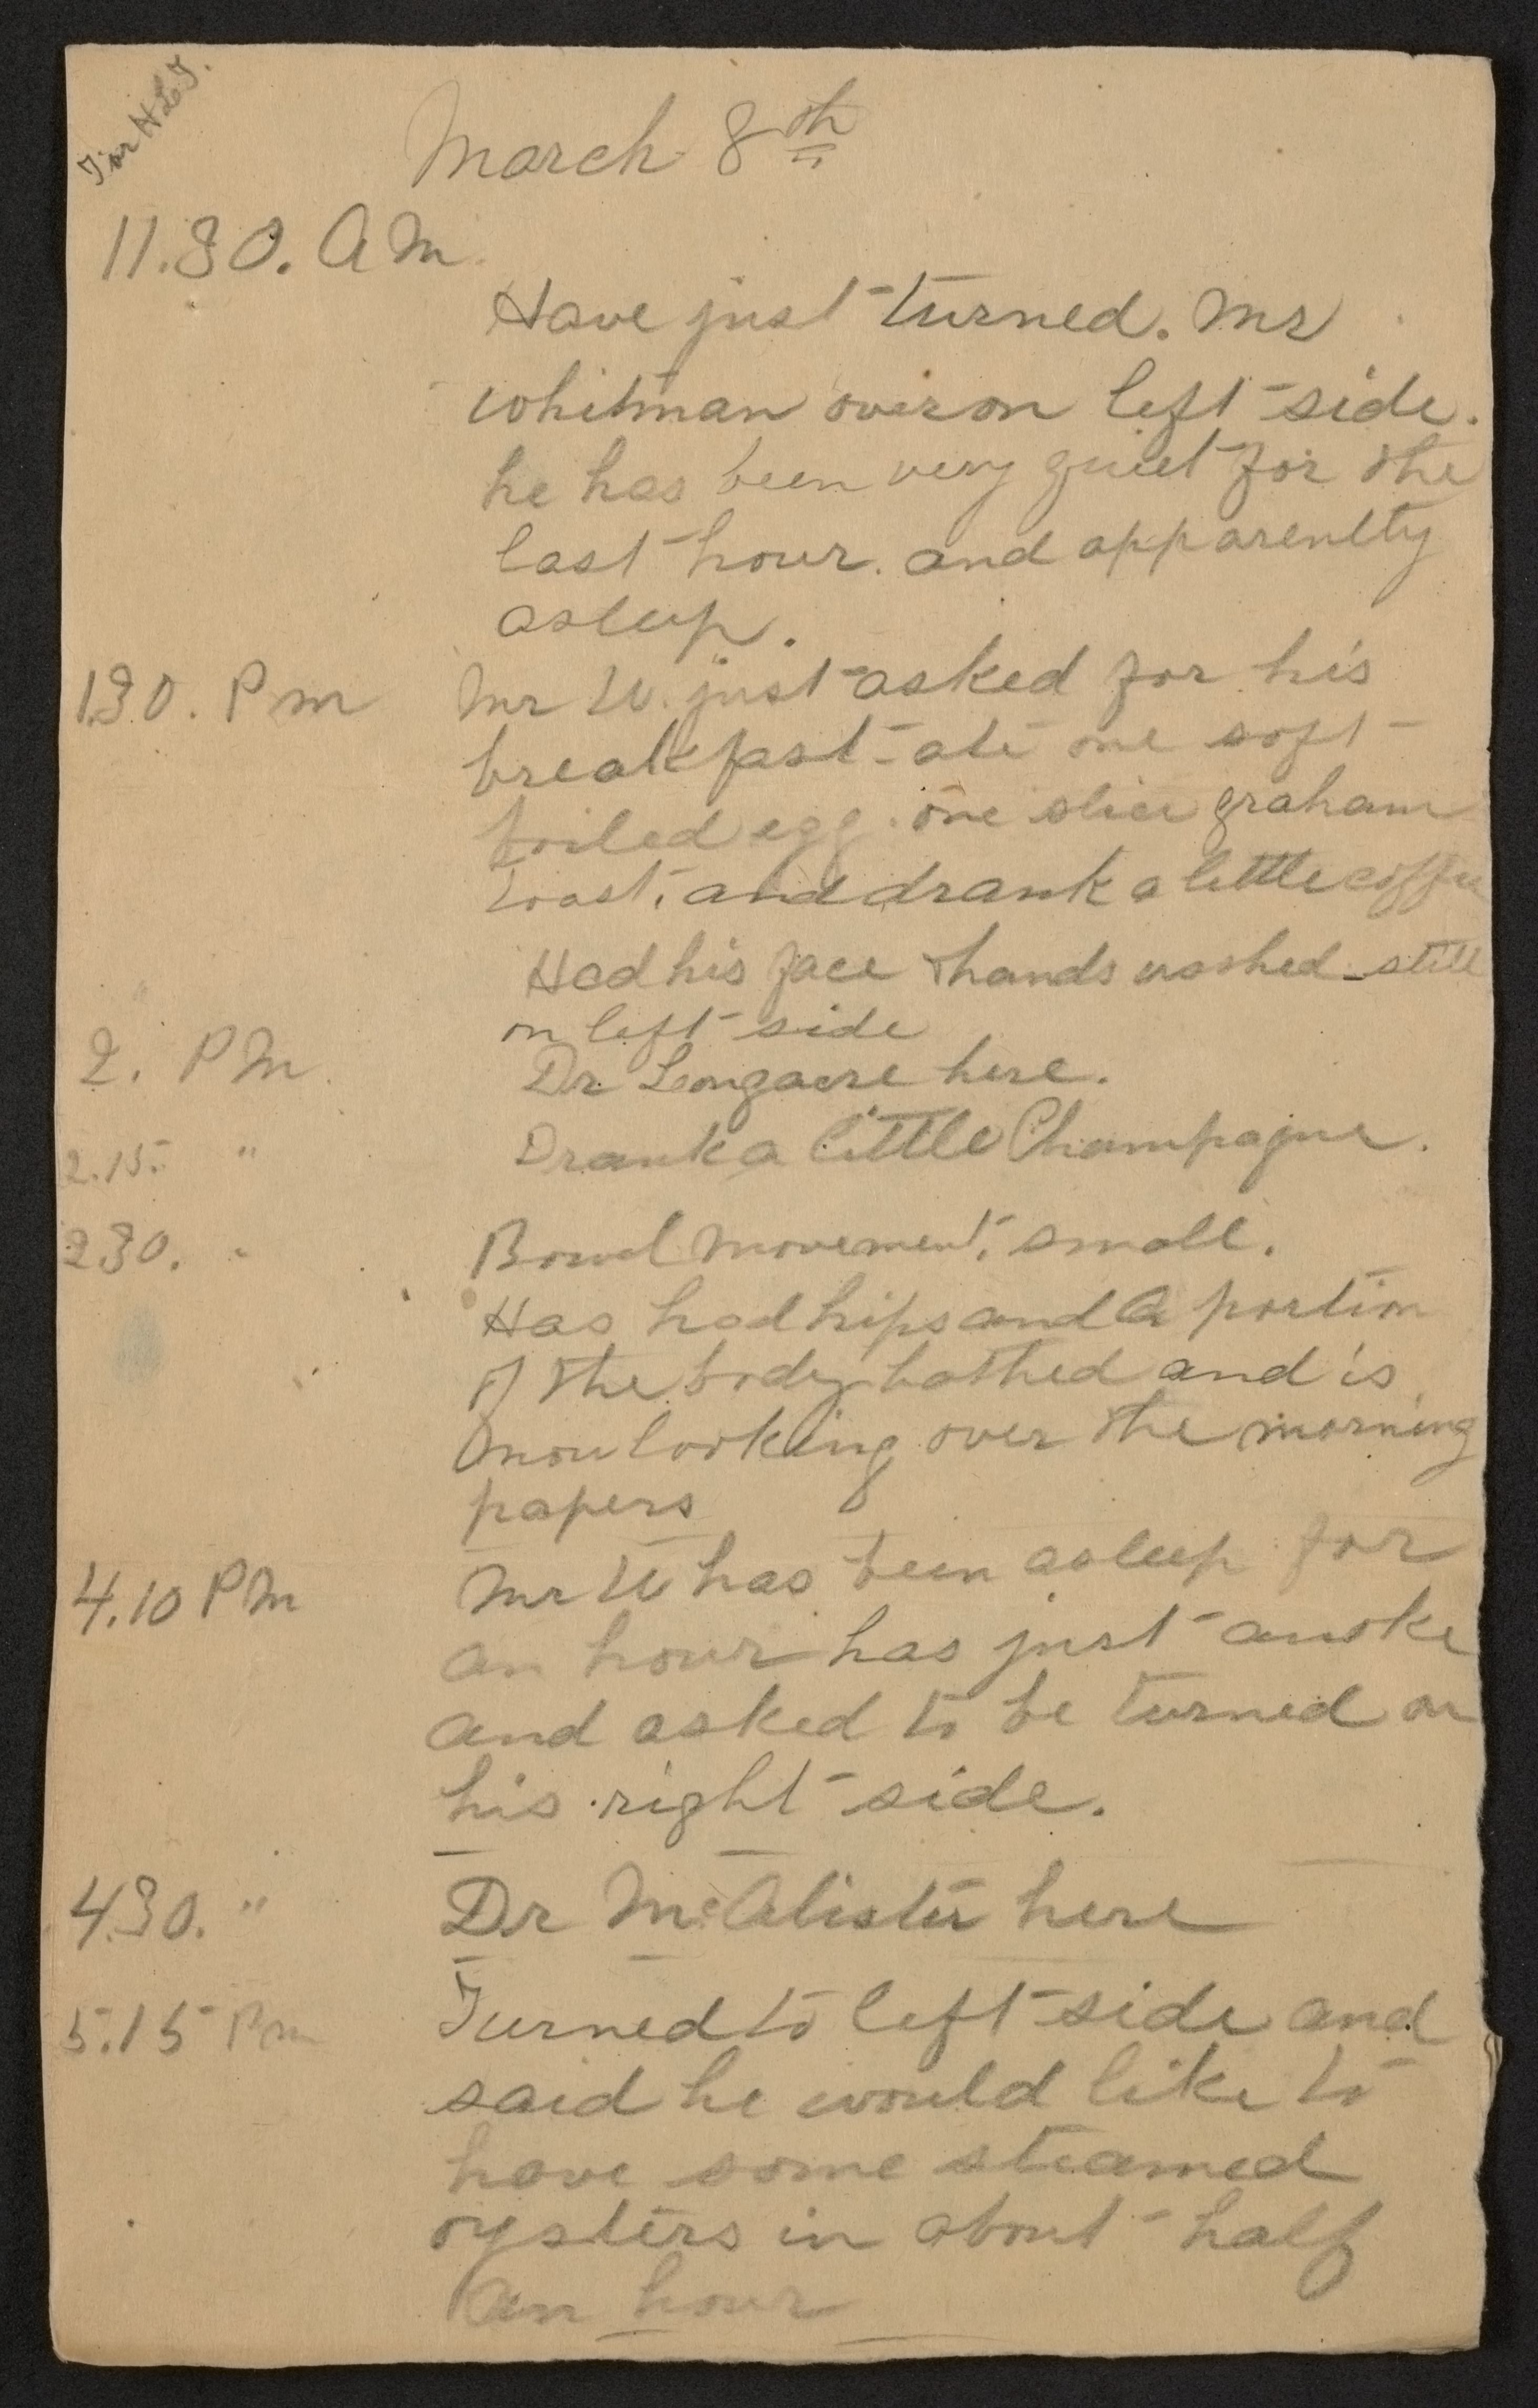 For H L T.
March 8th
11.30. A M
Have just turned. Mr
Whitman over on left side.
he has been very quiet for the
last hour. and apparenlty
asleep.
1.30. P m Mr W. just asked for his
breakfast - ate one soft
boiled egg. one slice graham
toast, and drank a little coffee
Had his face & hands washed - still
on left side
2. P M. Dr Longacre here.
2.15. " Drank a little Champagne.
2.30. " Bowel movement, small.
Has had hips and a portion
of the body bathed and is
now looking over the morning
papers
4.10 P M Mr W has been asleep for
an hour has just awoke
and asked to be turned on
his right side.
4.30. " Dr McAlister here
5.15 P m Turned to left side and
said he would like to
have some steamed
oysters in about half
an hour